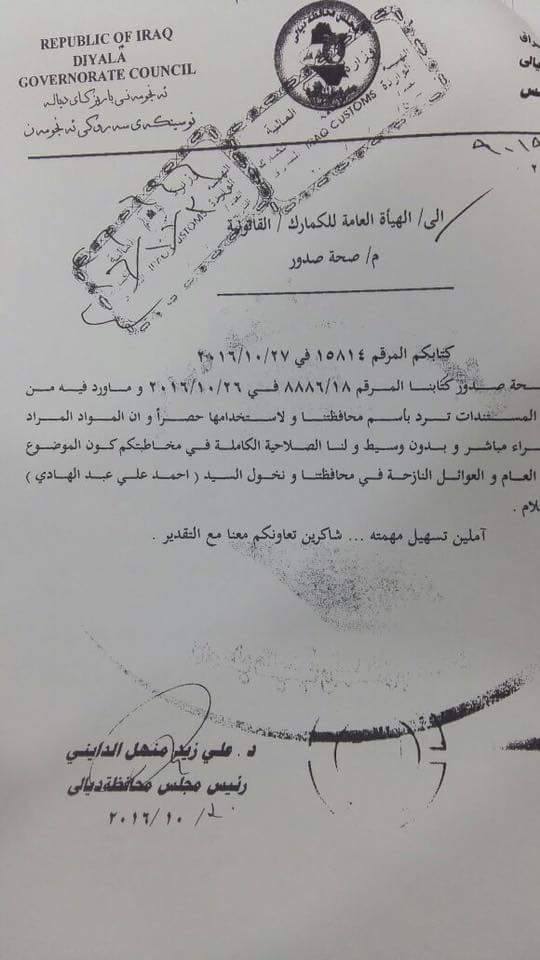 REPUBLIC OF IRAQ
DIYALA
GOVERNORATE COUNCIL
ئه نجومه نی پاریزگای دیاله
نوسینگه ی سه روکی ئه نجومه ن
مجلس محافظة ديالى
IRAQ CUSTOMS
IRAQ CUSTOMS
الى/ الهيأة العامة للكمارك / القانونية
م/ صحة صدور
كتابكم المرقم ١٥٨١٤ في ٢٠١٦/١٠/٢٧
حة صدور كتابنا المرقم ٨٨٨٦/١٨ في ٢٠١٦/١٠/٢٦ و ماورد فيه من
المستندات ترد بأسم محافظتنا و لاستخدامها حصراً و ان المواد المراد
راء مباشر و بدون وسيط و لنا الصلاحية الكاملة في مخاطبتكم كون الموضوع
العام و العوائل النازحة في محافظتنا و نخول السيد ( احمد علي عبد الهادي )
لام .
آملين تسهيل مهمته ... شاكرين تعاونكم معنا مع التقدير .
د . علي زيد منهل الدايني
رئيس مجلس محافظة ديالى
/ ١٠ /٢٠١٦